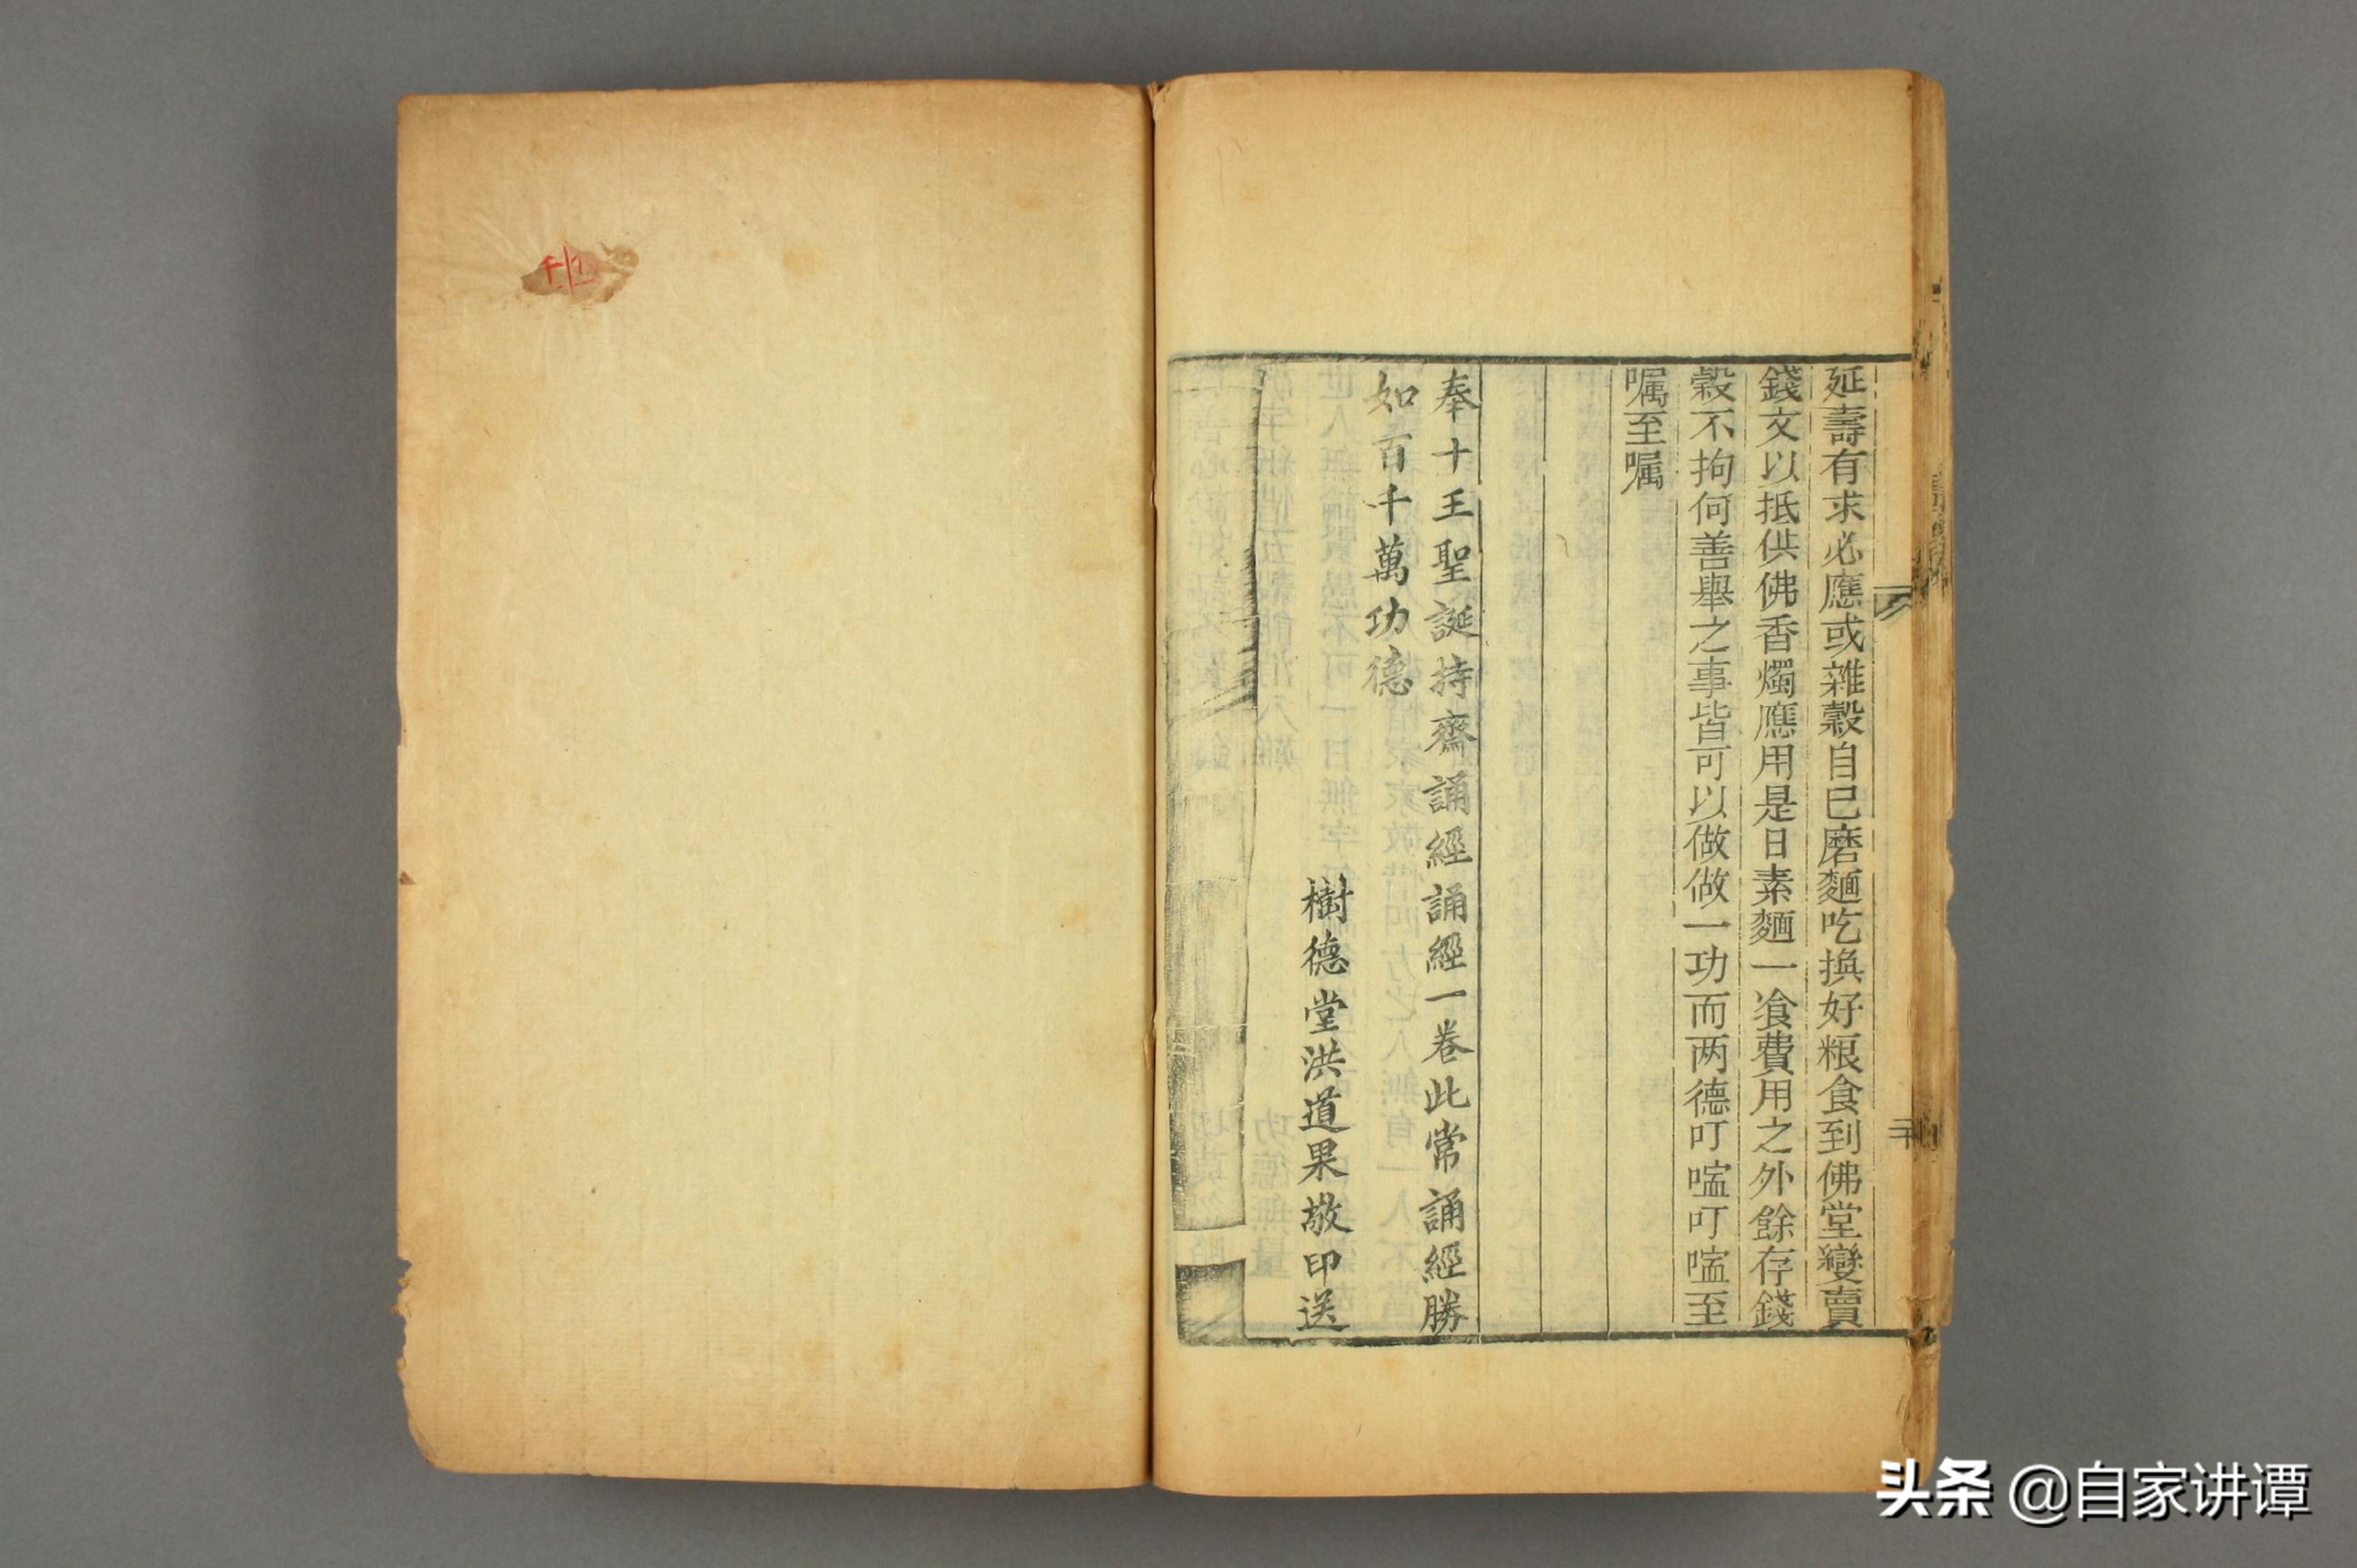 延壽有求必應或雜穀自已磨麵吃換好粮食到佛堂變賣
錢文以抵供佛香燭應用是日素麵一飡費用之外餘存錢
穀不拘何善舉之事皆可以做做一功而两德叮嚀叮嚀至
嘱至嘱
奉十王聖誕持齋誦經誦經一卷此常誦經勝
如百千萬功德
樹德堂洪道果敬印送
头条 @自家讲谭